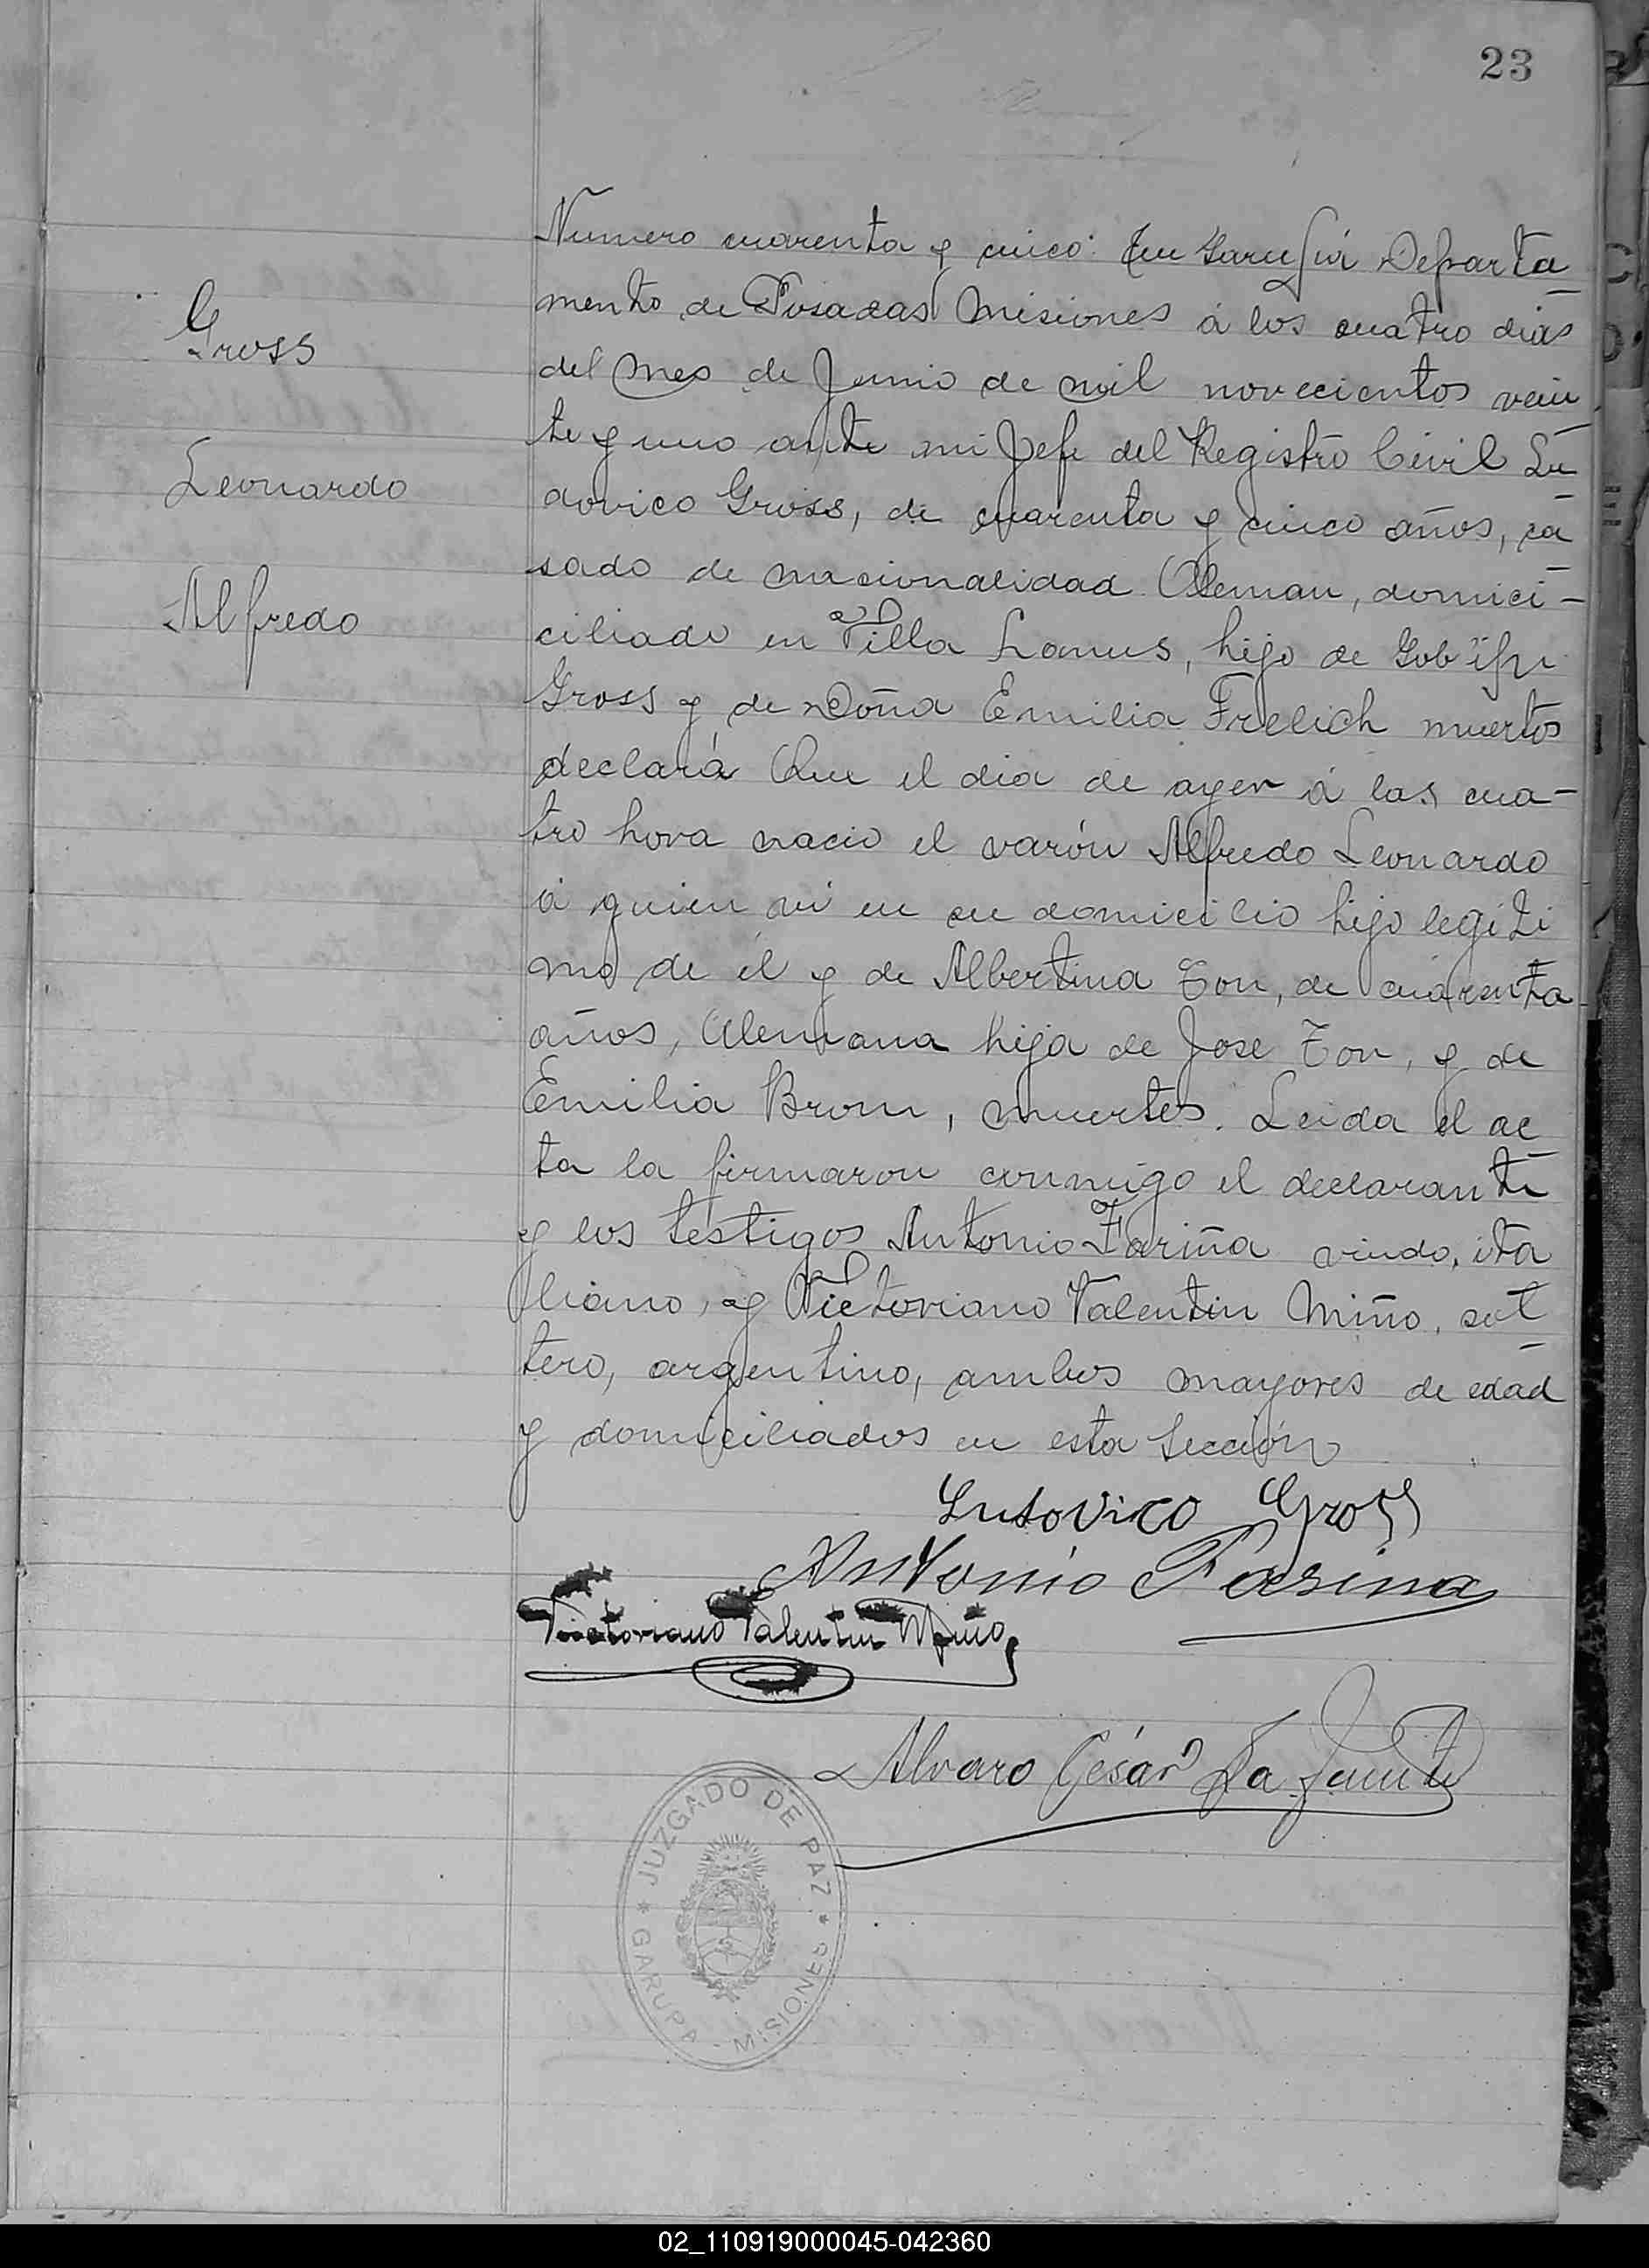 23
Numero cuarenta y cinco: En Garupá Departa
mento de Posadas Misiones á los cuatro dias
del mes de Junio de mil novecientos vein
te y uno ante mi Jefe del Registro Civil Lu
dovico Gross, de cuarenta y cinco años, ca
sado de nacionalidad Aleman, domici-
ciliado en Villa Lanus, hijo de
Gross y de Doña Emilia Frelich muertos
declará Que el dia de ayer á las cua-
tro hora nacio el varón Alfredo Leonardo
á quien vi en su domicilio hijo legiti
mo de él y de Albertina Ton, de cuarenta
años, Alemana hija de Jose Ton, y de
Emilia Brom, muertos. Leida el ac
ta la firmaron conmigo el declarante
y los testigos Antonio Fariña viudo, ita
liano, y Victoriano Valentin Miño, sol
tero, argentino, ambos mayores de edad
y domiciliados en esta Sección
Gross
Leonardo
Alfredo
Ludovico Gross
Antonio Farina
Victoriano Valentin Miño
Alvaro César La Fuente
JUZGADO DE PAZ * MISIONES - GARUPA *
02_110919000045-042360